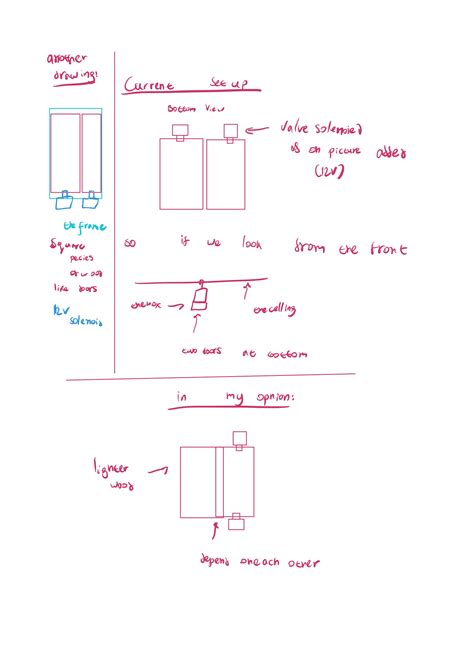 another
drawing:
the frame
Square
pecies
of wood
like doors
12V
solenoid
Current set up
Bottom View
Valve solenoied
is on picture added
(12V)
so if we look from the front
the box
the celling
two doors at bottom
in my opnion:
lighter
wood
depend oneach other